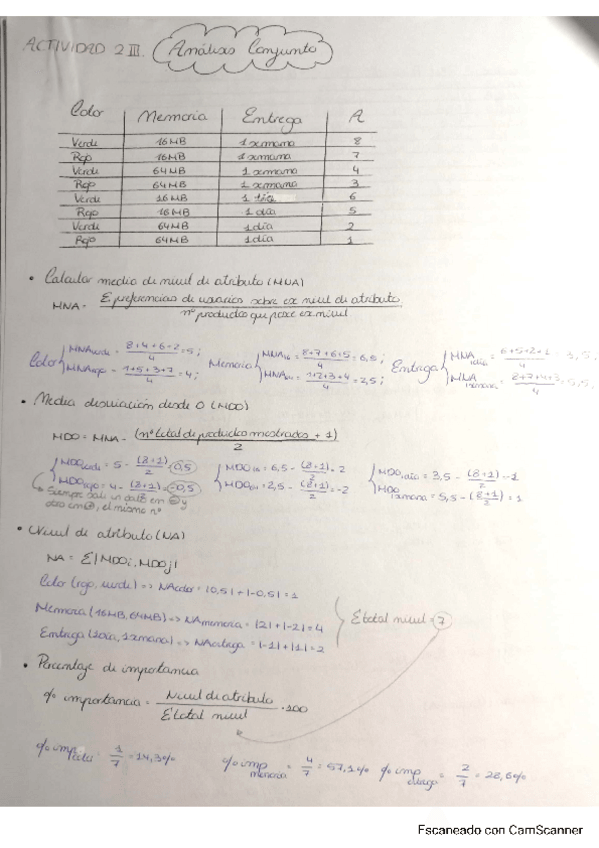 ACTIVIDAD 2 III. Análisis Conjunto
Color Memoria Entrega A
Verde 16MB 1 semana 8
Rojo 16MB 1 semana 7
Verde 64MB 1 semana 4
Rojo 64MB 1 semana 3
Verde 16MB 1 día 6
Rojo 16MB 1 día 5
Verde 64MB 1 día 2
Rojo 64MB 1 día 1
• Calcular media de nivel de atributo (MNA)
MNA = Σ preferencias de usuarios sobre ese nivel de atributo
nº productos que posee ese nivel
Color MNA verde = 8+4+6+2 / 4 = 5; Memoria MNA16 = 8+7+6+5 / 4 = 6,5; Entrega MNA 1día = 6+5+2+1 / 4 = 3,5
MNA rojo = 1+5+3+7 / 4 = 4; MNA64 = 1+2+3+4 / 4 = 2,5; MNA 1semana = 8+7+4+3 / 4 = 5,5
• Media desviación desde 0 (MDO)
MDO = MNA - (nº total de productos mostrados + 1) / 2
MDO verde = 5 - (8+1) / 2 = 0,5 MDO16 = 6,5 - (8+1) / 2 = 2 MDO 1día = 3,5 - (8+1) / 2 = -1
MDO rojo = 4 - (8+1) / 2 = -0,5 MDO64 = 2,5 - (8+1) / 2 = -2 MDO 1semana = 5,5 - (8+1) / 2 = 1
Siempre sale un dato en ⊕ y
otro en ⊖, el mismo nº
• Nivel de atributo (NA)
NA = Σ|MDOi, MDOj|
Color (rojo, verde) => NAcolor = |0,5| + |-0,5| = 1
Memoria (16MB, 64MB) => NAmemoria = |2| + |-2| = 4
Entrega (1día, 1semana) => NAentrega = |-1| + |1| = 2
Σ total nivel = 7
• Porcentaje de importancia
% importancia = Nivel de atributo / Σ total nivel · 100
% imp color = 1/7 = 14,3% % imp memoria = 4/7 = 57,1% % imp entrega = 2/7 = 28,6%
Escaneado con CamScanner